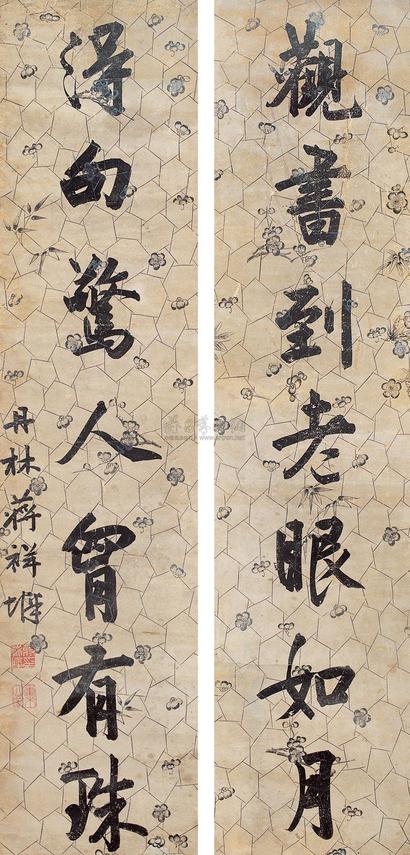 觀書到老眼如月
得句驚人胷有珠
丹林蔣祥墀